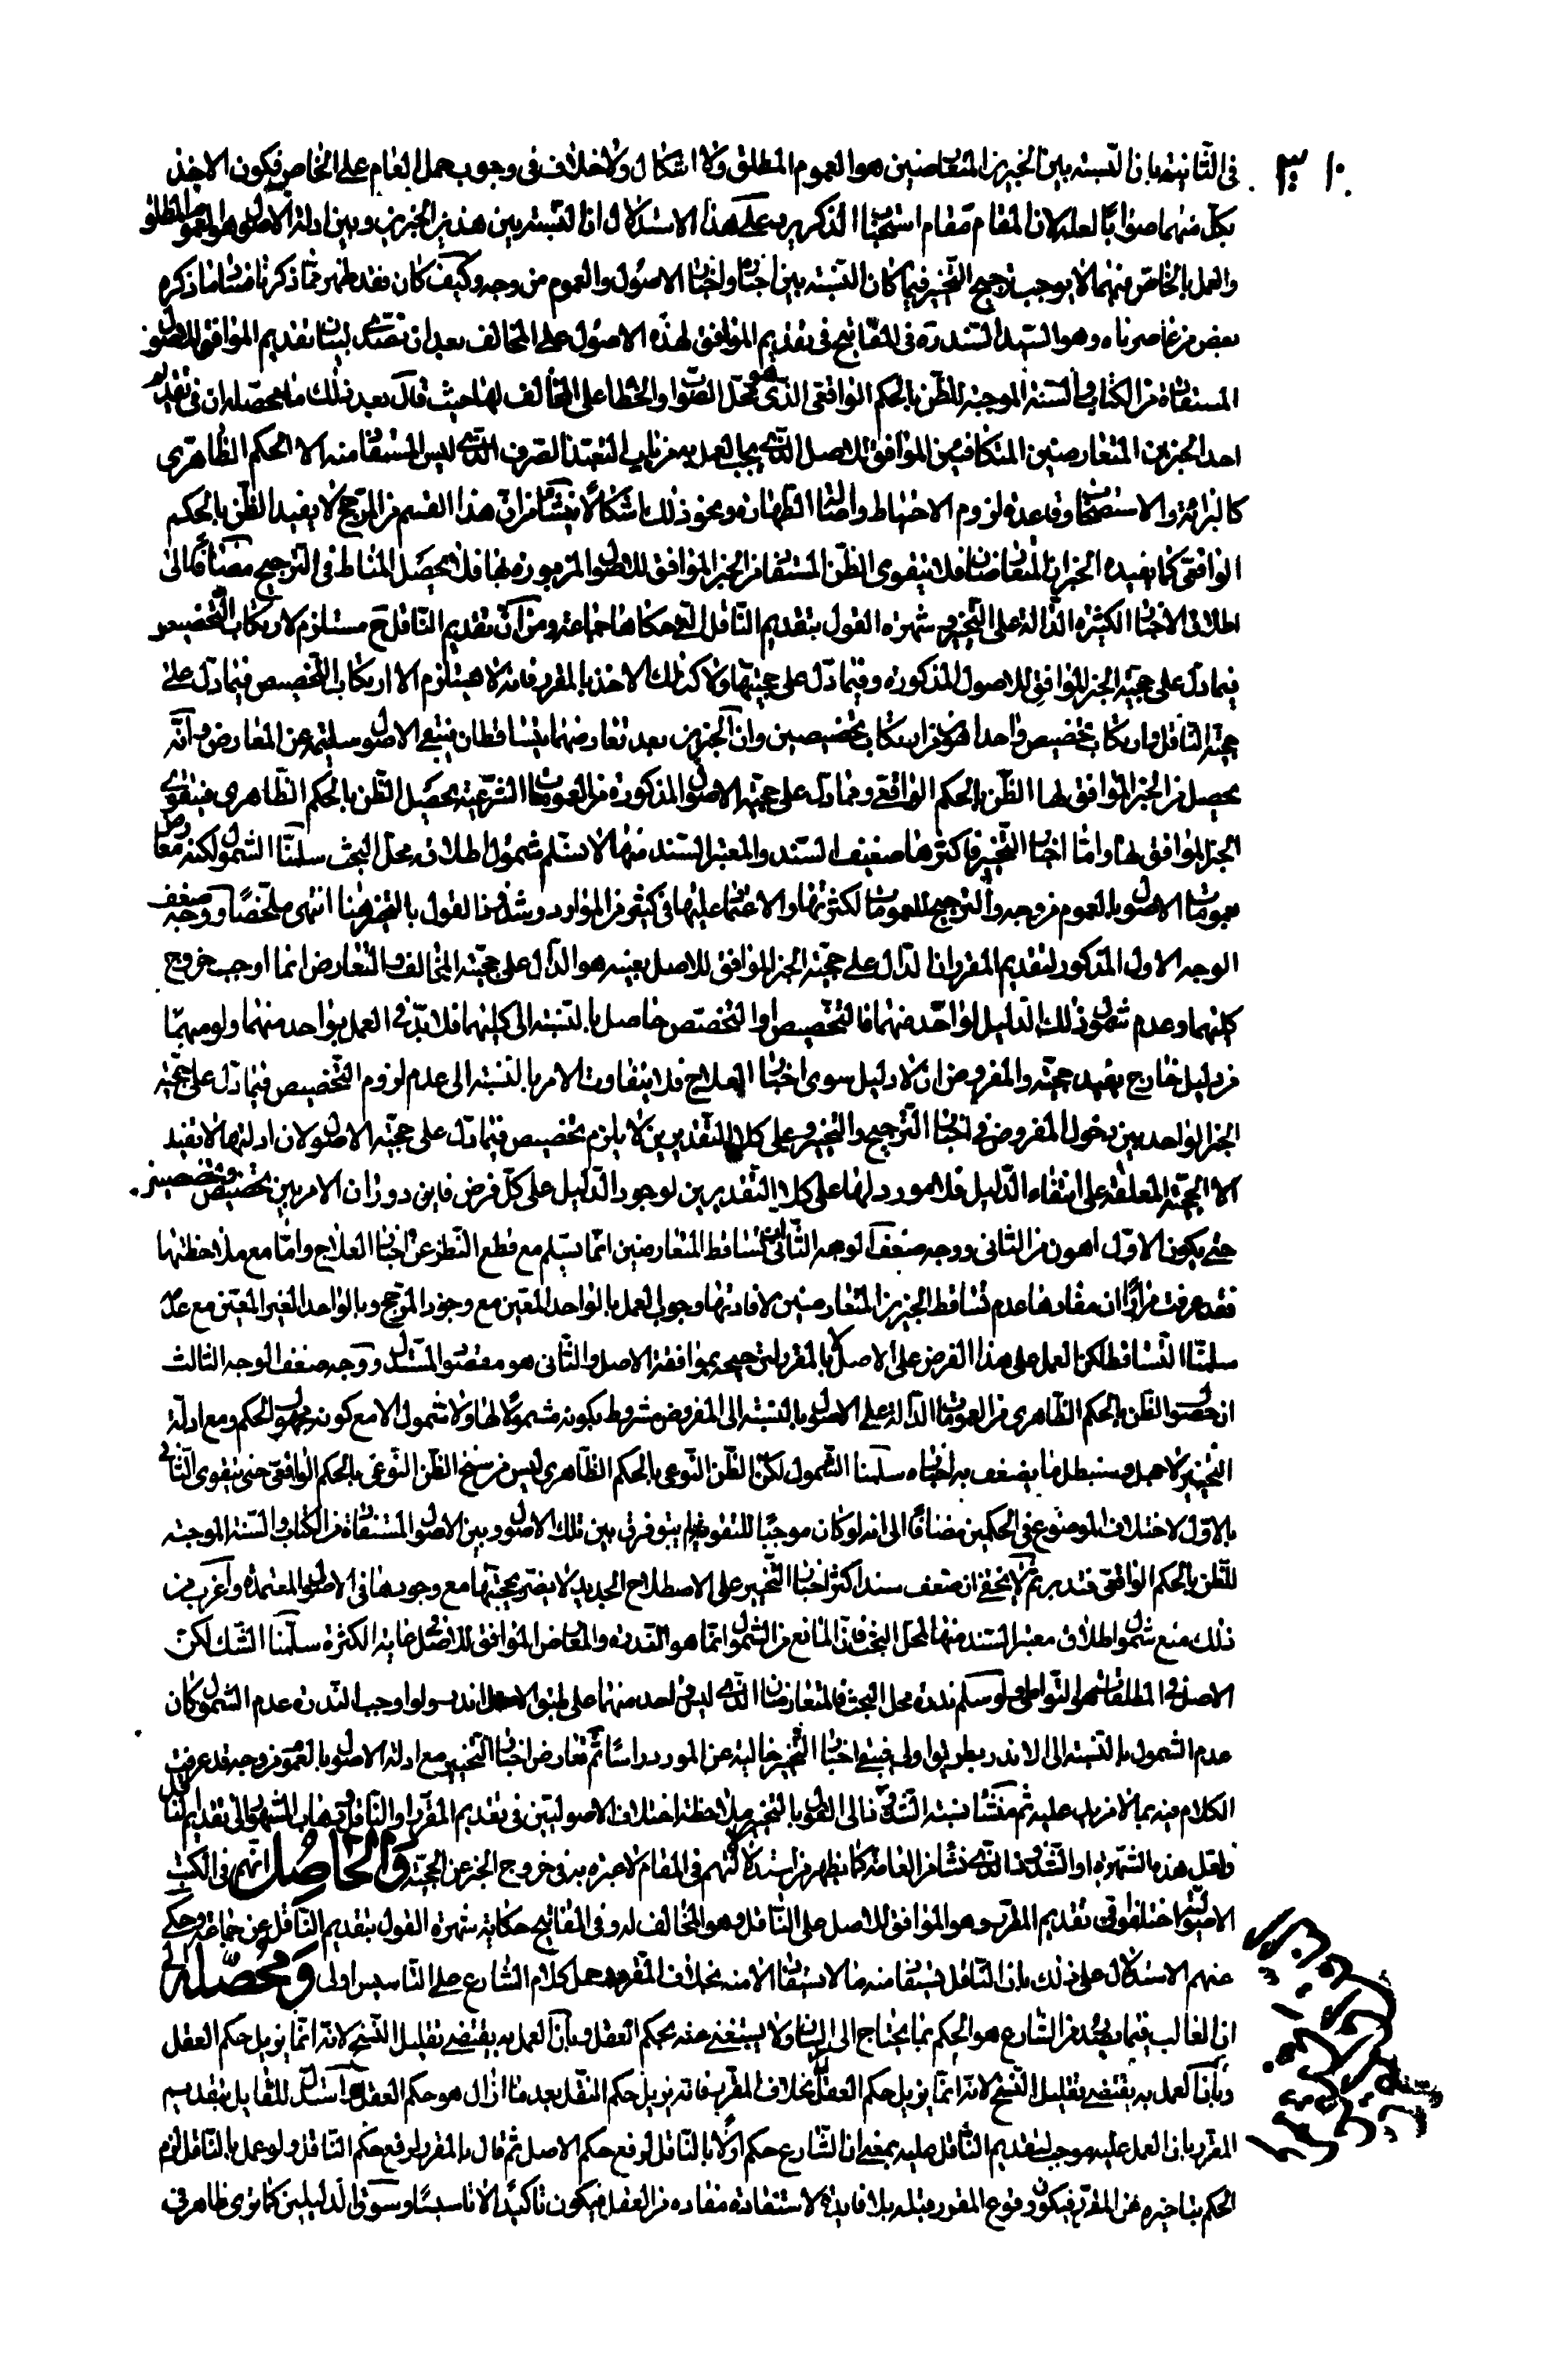 ٣١٠
فى الثانية بان النسبة بين الخبرين المتعارضين هو العموم المطلق ولا اشكال ولا خلاف فى وجوب حمل العام على الخاص فيكون الاخذ
بكل منهما صوابا لعله لان المقام مقام استحباب الذكر يرد على هذا الاستدلال ان النسبة بين هذين الخبرين وبين ادلة الاصول هو العموم المطلق
والعمل بالخاص منهما لا يوجب ترجيح التخيير فيما كان النسبة بين اخباره واخبار الاصول والعموم من وجه وكيف كان فقد ظهر مما ذكرنا فساد ما ذكره
بعض من عاصرناه وهو السيد السند ره فى المفاتيح فى تقديم الموافق لهذه الاصول على المخالف بعد ان تصدى لبيان تقديم الموافق للاصول
المستفادة من الكتاب والسنة الموجبة للظن بالحكم الواقعى الذى هو محل الصواب والخطا على المخالف لها حيث قال بعد ذلك ما محصله ان فى تقديم
احد الخبرين المتعارضين المتكافئين الموافق للاصل الذى يجب العمل به من باب التعبد الصرف الذى ليس المستفاد منه الا الحكم الظاهرى
كالبرائة والاستصحاب وقاعدة لزوم الاحتياط واصالة الطهارة ونحو ذلك اشكالا ينشأ من ان هذا القسم من المرجح لا يفيد الظن بالحكم
الواقعى كما يفيده الخبران المتعارضان فلا يتقوى الظن المستفاد من الخبر الموافق للاصول المزبورة بها فلا يحصل المناط فى الترجيح مضافا الى
اطلاق الاخبار الكثيرة الدالة على التخيير وشهرة القول بتقديم الناقل التى حكاها جماعة ومن ان تقديم الناقل ح مستلزم لارتكاب التخصيص
فيما دل على حجية الخبر الموافق للاصول المذكورة وفيما دل على حجيتها ولا كذلك الاخذ بالمقرر فانه لا يستلزم الا ارتكاب التخصيص فيما دل على
حجية الناقل وارتكاب تخصيص واحد اهون من ارتكاب تخصيصين وان الخبرين بعد تعارضهما يتساقطان فيبقى الاصول سليمة عن المعارض وانه
يحصل من الخبر الموافق لها الظن بالحكم الواقعى ومما دل على حجية الاصول المذكورة من العمومات الشرعية يحصل الظن بالحكم الظاهرى فيتقوى
الخبر الموافق لها واما اخبار التخيير فاكثرها ضعيف السند والمعتبر السند منها لا نسلم شمول اطلاقه محل البحث سلمنا الشمول لكنه معارض
بعمومات الاصول بالعموم من وجه والترجيح للعمومات لكثرتها والاعتماد عليها فى كثير من الموارد وشذوذ القول بالتخيير هنا انتهى ملخصا ووجه ضعف
الوجه الاول المذكور لتقديم المقرر ان الدال على حجية الخبر الموافق للاصل بعينه هو الدال على حجية المخالف والتعارض انما اوجب خروج
كليهما وعدم شمول ذلك الدليل لواحد منهما فالتخصيص او التخصص حاصل بالنسبة الى كليهما فلا بد فى العمل بواحد منهما ولو مبهما
من دليل خارج يفيد حجيته والمفروض ان لا دليل سوى اخبار العلاج فلا يتفاوت الامر بالنسبة الى عدم لزوم التخصيص فيما دل على حجية
الخبر الواحد بين دخول المفروض فى اخبار الترجيح والتخيير وعلى كلا التقديرين لا يلزم تخصيص فيما دل على حجية الاصول لان ادلتها لا يفيد
الا الحجية المعلقة على انتفاء الدليل فلا مورد لها على كلا التقديرين لوجود الدليل على كل فرض فاين دوران الامر بين تخصيص وتخصيصين
حتى يكون الاول اهون من الثانى ووجه ضعف الوجه الثانى ان تساقط المتعارضين انما يسلم مع قطع النظر عن اخبار العلاج واما مع ملاحظتها
فقد عرفت مرارا ان مفادها عدم تساقط الخبرين المتعارضين لافادتها وجوب العمل بالواحد المعين مع وجود المرجح وبالواحد الغير المعين مع عدمه
سلمنا التساقط لكن العمل على هذا الفرض على الاصل لا بالمقرر لترجيحه بموافقة الاصل والثانى هو مقصود المستدل ووجه ضعف الوجه الثالث
ان حصول الظن بالحكم الظاهرى من العمومات الدالة على الاصول بالنسبة الى المفروض مشروط بكونه مشمولا لها ولا شمول الا مع كونه مجهول الحكم ومع ادلة
التخيير لا جهل وسنبطل ما يضعف به اخباره سلمنا الشمول لكن الظن النوعى بالحكم الظاهرى ليس من سنخ الظن النوعى بالحكم الواقعى حتى يتقوى الثانى
بالاول لاختلاف الموضوع فى الحكمين مضافا الى انه لو كان موجبا للتقوى لم يبق فرق بين تلك الاصول وبين الاصول المستفادة من الكتاب والسنة الموجبة
للظن بالحكم الواقعى فتدبر ثم لا يخفى ان ضعف سند اكثر اخبار التخيير على الاصطلاح الجديد لا يضر بحجيتها مع وجودها فى الاصول المعتمدة واغرب من
ذلك منع شمول اطلاق معتبر السند منها لمحل البحث فان المانع من الشمول انما هو الندرة والتعارض الموافق للاصل فى غاية الكثرة سلمنا الشك لكن
الاصل فى المطلقات هو التواطى ولو سلم ندرة محل البحث فالمتعارضان الذى ليس احد منهما على طبق الاصل اندر ولو اوجب الندرة عدم الشمول كان
عدم الشمول بالنسبة الى الاندر بطريق اولى فيبقى اخبار التخيير خالية عن المورد راسا ثم تعارض اخبار التخيير مع ادلة الاصول بالعموم من وجه قد عرفت
الكلام فيه بما لا مزيد عليه ثم منشأ نسبة الشذوذ الى القول بالتخيير ملاحظة اختلاف الاصوليين فى تقديم المقرر او الناقل وذهاب المشهور الى تقديم الناقل
ولعل هذه الشهرة او الشذوذ الذى نشأ من العامة كما يظهر من استدلالتهم فى المقام لا عبرة به فى خروج الخبر عن الحجية والحاصل انهم فى الكتب
الاصولية اختلفوا فى تقديم المقرر وهو الموافق للاصل على الناقل وهو المخالف له وفى المفاتيح حكاية شهرة القول بتقديم الناقل عن جماعة وحكى
عنهم الاستدلال على ذلك بان الناقل يستفاد منه ما لا يستفاد الا منه بخلاف المقرر وحمل كلام الشارع على التاسيس اولى ومحصله الى
ان الغالب فيما يصدر من الشارع هو الحكم بما يحتاج الى البيان ولا يستغنى عنه بحكم العقل وبان العمل به يقتضى تقليل النسخ لانه انما يزيل حكم العقل
وبان العمل به يقتضى تقليل النسخ لانه انما يزيل حكم العقل بخلاف المقرر فانه يزيل حكم النقل بعد ما ازال هو حكم العقل واستدل للقايل بتقديم
المقرر بان العمل عليه موجب لتقديم الناقل عليه بمعنى ان الشارع حكم اولا بالناقل لرفع حكم الاصل ثم قال بالمقرر لرفع حكم الناقل ولو عمل بالناقل لزم
الحكم بتاخيره عن المقرر فيكون وقوع المقرر قبله بلا فايدة لاستفادة مفاده من العقل فيكون تاكيدا لا تاسيسا وسوق الدليلين كما ترى ظاهر فى